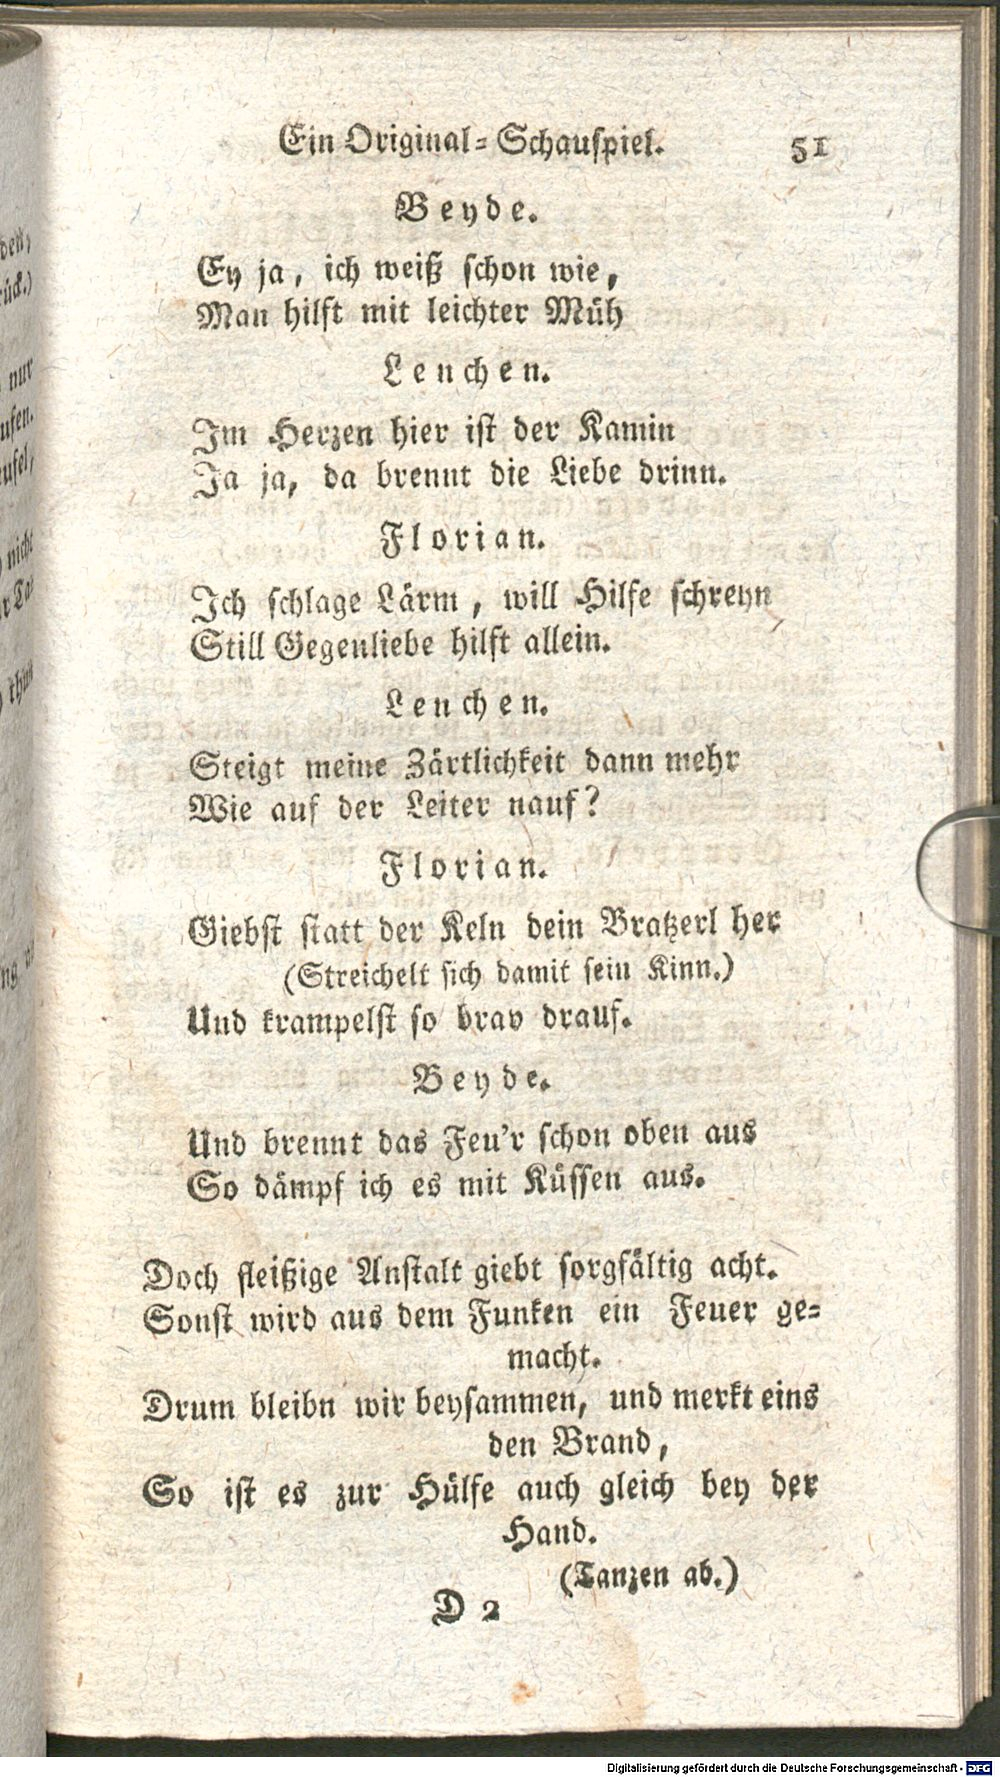 Ein Original-Schauspiel. 51
Beyde.
Ey ja, ich weiß schon wie,
Man hilft mit leichter Müh
Lenchen.
Im Herzen hier ist der Kamin
Ja ja, da brennt die Liebe drinn.
Florian.
Ich schlage Lärm, will Hilfe schreyn
Still Gegenliebe hilft allein.
Lenchen.
Steigt meine Zärtlichkeit dann mehr
Wie auf der Leiter nauf?
Florian.
Giebst statt der Keln dein Bratzerl her
(Streichelt sich damit sein Kinn.)
Und krampelst so brav drauf.
Beyde.
Und brennt das Feu'r schon oben aus
So dämpf ich es mit Küssen aus.
Doch fleißige Anstalt giebt sorgfältig acht.
Sonst wird aus dem Funken ein Feuer ge-
macht.
Drum bleibn wir beysammen, und merkt eins
den Brand,
So ist es zur Hülfe auch gleich bey der
Hand.
(Tanzen ab.)
D 2
den,
rück.)
nur
ufen.
eufel,
nicht
r Ta-
thun
Digitalisierung gefördert durch die Deutsche Forschungsgemeinschaft - DFG